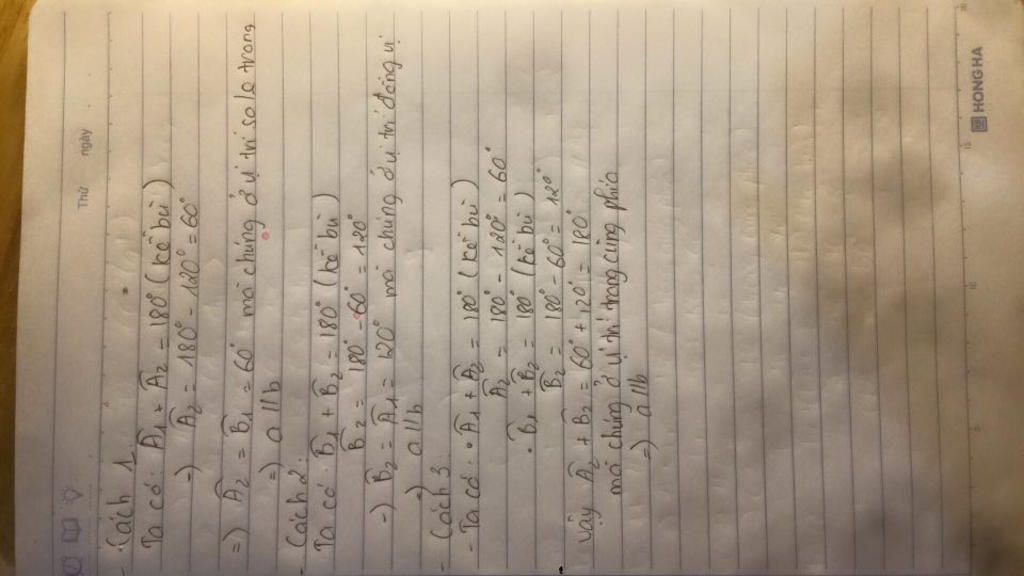 Thứ
ngày
- Cách 1
Ta có: Â1 + Â2 = 180° (kề bù)
=) Â2 = 180° - 120° = 60°
=) Â2 = B̂1 = 60° mà chúng ở vị trí sole trong
=) a // b
- Cách 2:
Ta có: B̂1 + B̂2 = 180° (kề bù)
B̂2 = 180° - 60° = 120°
=) B̂2 = Â1 = 120° mà chúng ở vị trí đồng vị
=) a // b
- Cách 3:
- Ta có: • Â1 + Â2 = 180° (kề bù)
Â2 = 180° - 120° = 60°
• B̂1 + B̂2 = 180° (kề bù)
B̂2 = 180° - 60° = 120°
Vậy Â2 + B̂2 = 60° + 120° = 180°
mà chúng ở vị trí trong cùng phía
=) a // b
HONG HA